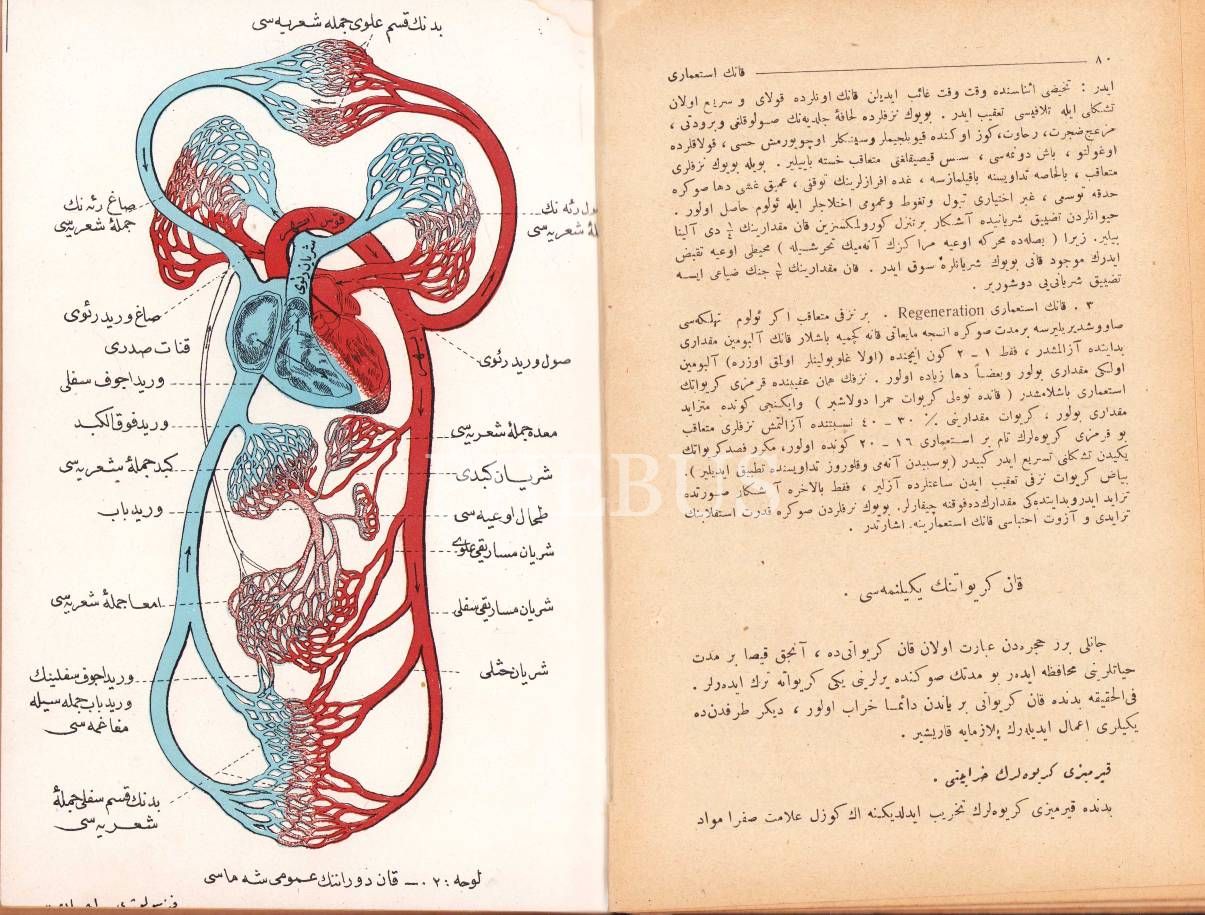 بدنك قسم علوی جمله شعریه سی
صاغ رئه نك
جملهٔ شعریه سی
صول رئه نك
شعریه سی
قوس
شریان رئوی
صاغ ورید رئوی
قنات صدری
صول ورید رئوی
ورید اجوف سفلی
ورید فوق الكبد
معده جملهٔ شعریه سی
كبد جملهٔ شعریه سی
شریان كبدی
ورید باب
طحال اوعیه سی
شریان مساریقی علوی
امعا جملهٔ شعریه سی
شریان مساریقی سفلی
ورید اجوف سفلینك
ورید باب جمله سیله
مفاغمه سی
شریان حثلی
بدنك قسم سفلی جملهٔ
شعریه سی
لوحه : ٢ ٠ — قان دوراننك عمومی شه ماسی
PHEBUS
٨٠ قانك استعماری
ایدر : تخیضی اثناسنده وقت وقت غائب ایدیلن قانك اونلرده قولای و سریع اولان
تشكلی ایله تلافیسی تعقیب ایدر . بویوك نزفلرده لحافهٔ جلدیه نك صولوقلغی وبرودتی ،
مزعج ضجرت ، رخاوت ، كوز اوكنده قیویلجیملر وسینكلر اوچویورمش حسی ، قولاقلرده
اوغولتو ، باش دونمه سی ، سس قیصیقلغنی متعاقب خسته بایییلیر . بویله بویوك نزفلری
متعاقب ، بالخاصه تداویسنه باقیلمازسه ، غده افرازلرینك توقفی ، عمیق غشی دها صوكره
حدقه توسعی ، غیر اختیاری تبول وتغوط وعمومی اختلاجلر ایله ئولوم حاصل اولور .
حیوانلردن تضییق شریانیده آشكار بر تنزل كورولمكسزین قان مقدارینك ¼ دی آلینا
بیلیر . زیرا ( بصله ده محركه اوعیه مراكزك آنه میك تحرشیله ) محیطی اوعیه تقبض
ایدرك موجود قانی بویوك شریانلره سوق ایدر . قان مقدارینك جنك ضیاعی ایسه
تضییق شریانی یی دوشورر .
٣ . قانك استعماری Regeneration . بر نزفی متعاقب اكر ئولوم تهلكه سی
صاووشدیریلیرسه بر مدت صوكره انسجه مایعاتی قانه كچمیه باشلار قانك آلبومین مقداری
بدایتده آزالمشدر ، فقط ١ - ٢ كون ایچنده (اولا غلوبولینلر اولمق اوزره) آلبومین
اولكی مقداری بولور وبعضاً دها زیاده اولور . نزفك همان عقبنده قرمزی كریواتك
استعماری باشلامشدر ( قانده نوه لی كریوات حمرا دولاشیر ) وایكنجی كونده متزاید
مقداری بولور ، كریوات مقدارینی ٪ ٣٠ - ٤٠ نسبتنده آزالتمش نزفلری متعاقب
بو قرمزی كریوه لرك تام بر استعماری ١٦ - ٢٠ كونده اولور ، مكرر فصد كریواتك
یكیدن تشكلنی تسریع ایدر كبیدر (بوسببدن آنه می وقلوروز تداویسنده تطبیق ایدیلیر) .
بیاض كریوات نزفی تعقیب ایدن ساعتلرده آزلیر ، فقط بالاخره آشكار صورتده
تزاید ایدر وبدایتده كی مقدارك ده فوقنه چیقارلر . بویوك نزفلردن صوكره قدرت استقلابینك
تزایدی و آزوت احتباسی قانك استعمارینه اشارتدر .
قان كریواتنك یكیلنمه سی .
جانلی برر حجره دن عبارت اولان قان كریواتی ده ، آنجق قیصا بر مدت
حیاتلرینی محافظه ایده ر بو مدتك صوكنده یرلرینی یكی كریواته ترك ایده رلر .
فی الحقیقه بدنده قان كریواتی بر یاندن دائما خراب اولور ، دیكر طرفدن ده
یكیلری اعمال ایدیله رك پلازمایه قاریشیر .
قیرمیزی كریوه لرك خرابیتی .
بدنده قیرمیزی كریوه لرك تخریب ایدلدیكنه اك كوزل علامت صفرا مواد